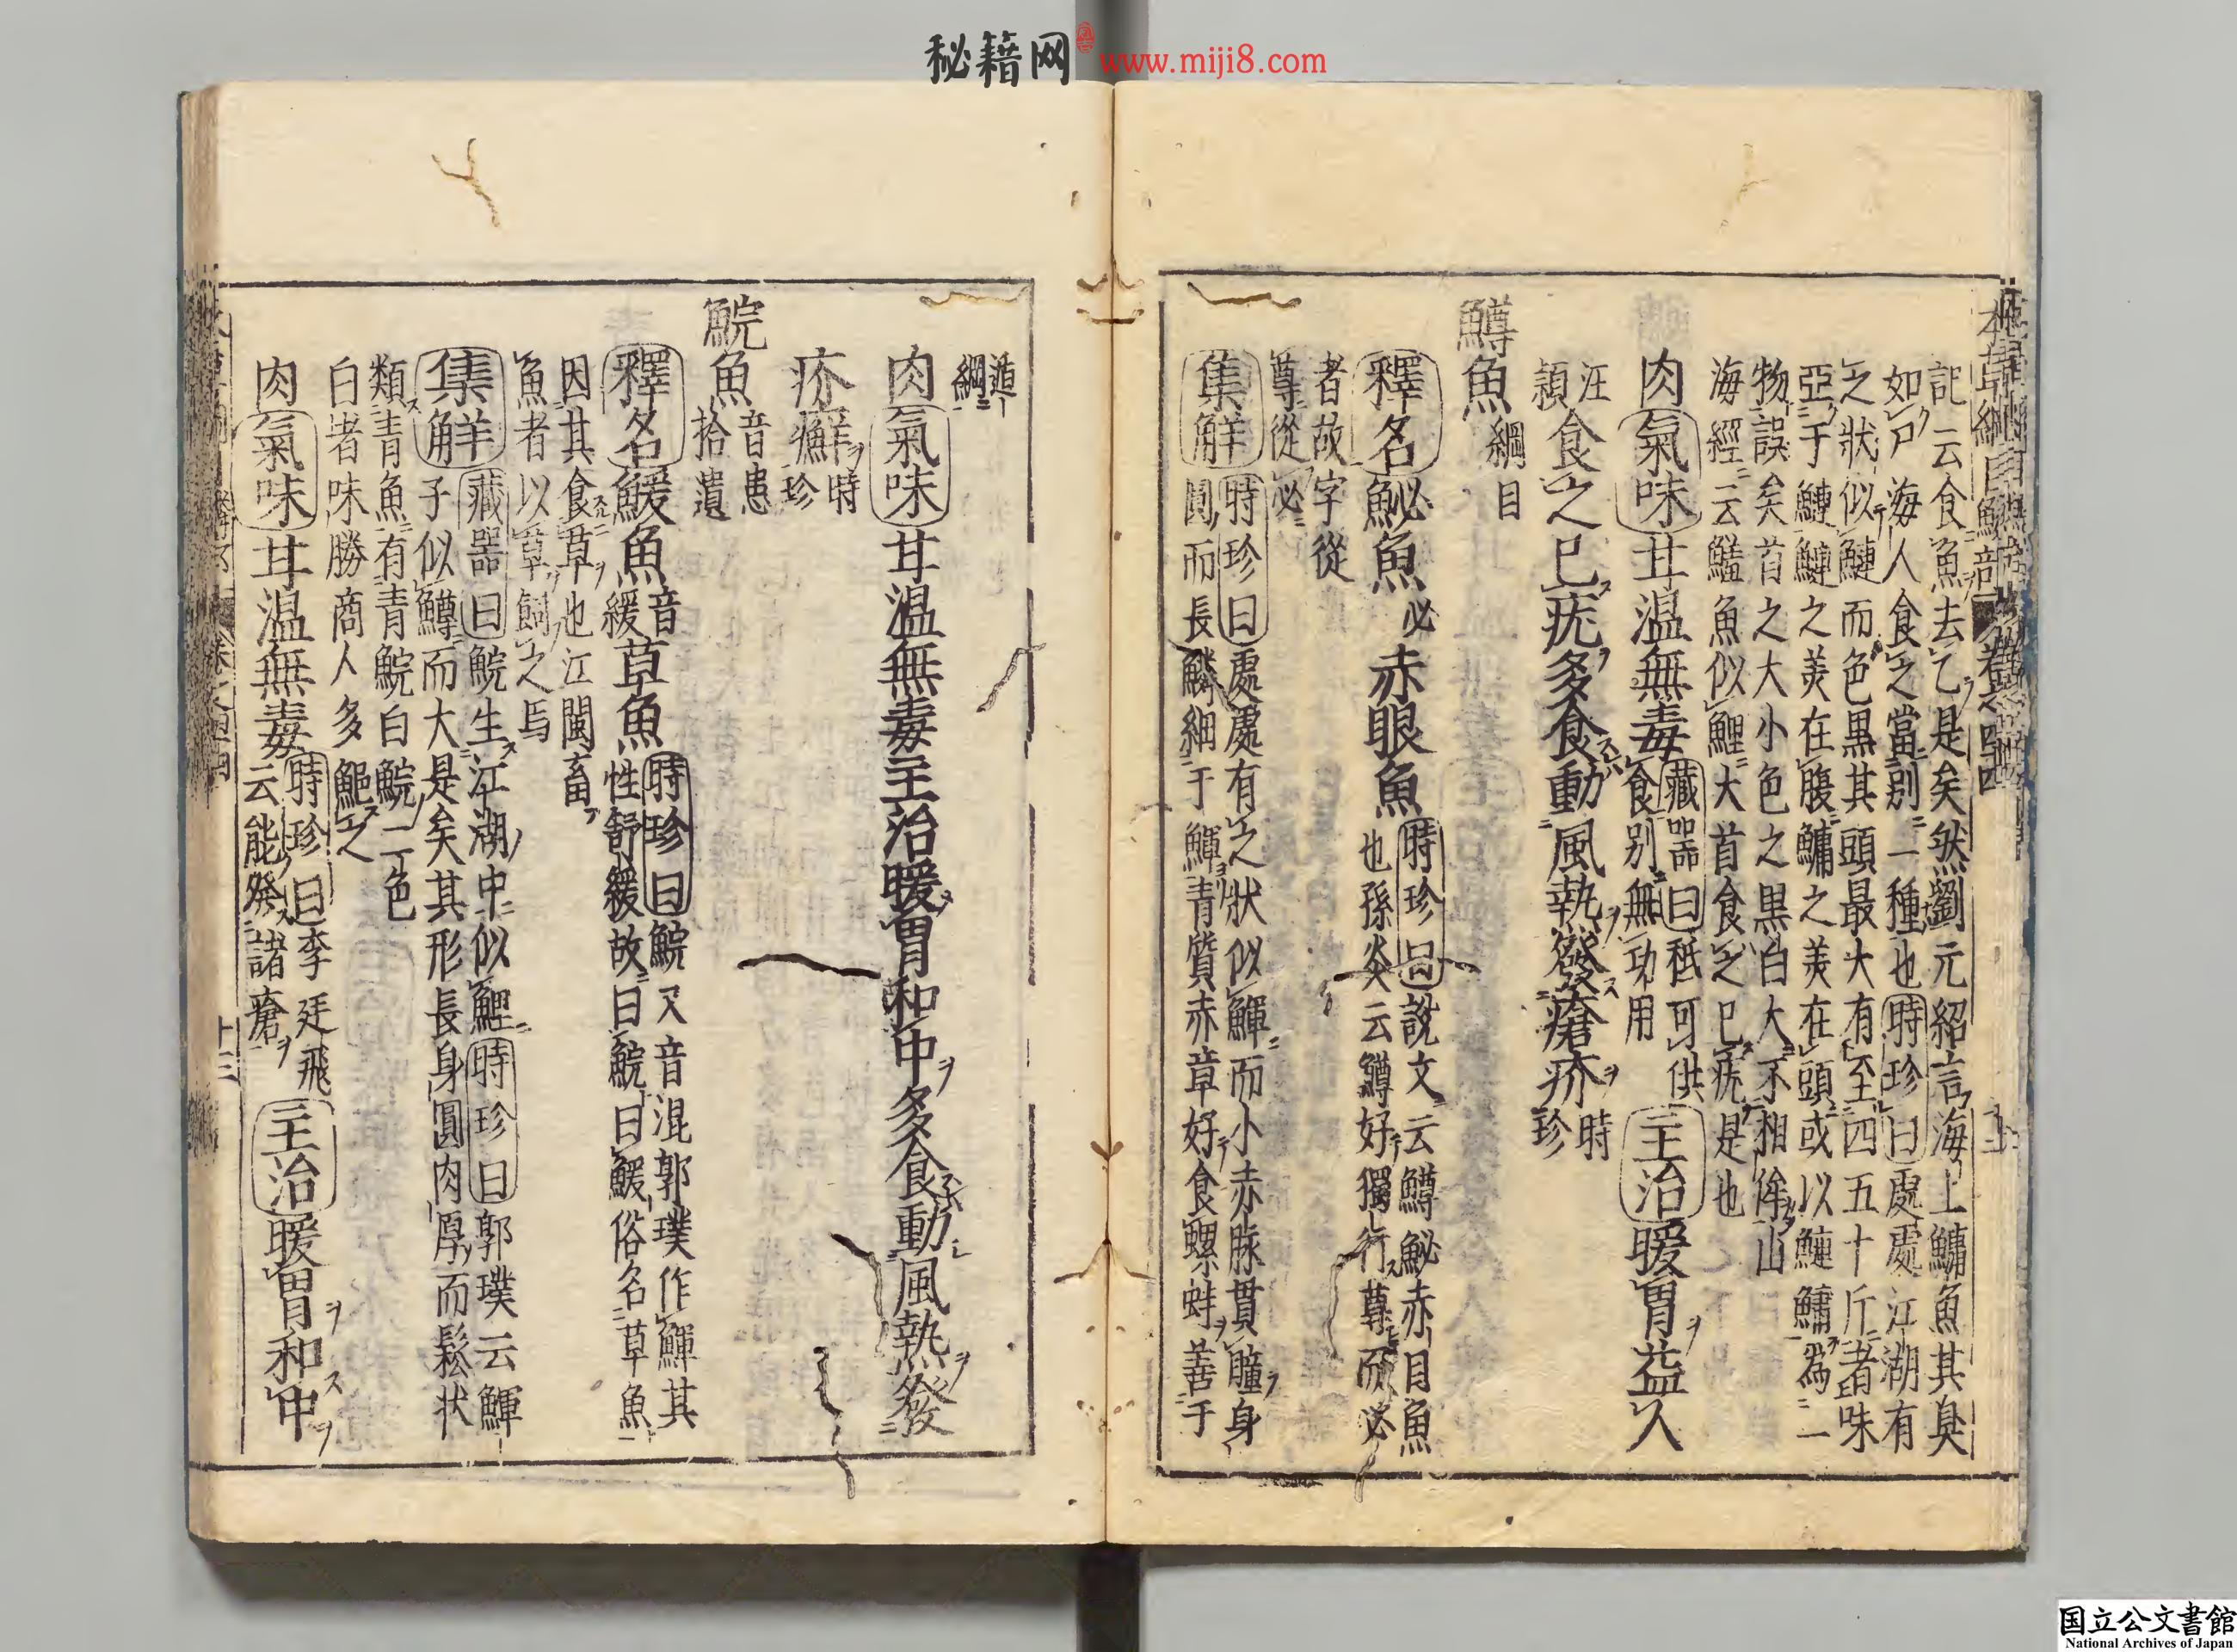 秘籍网 www.miji8.com
記云食魚去乙是矣然劉元紹言海上鱅魚其臭
如尸海人食之當別一種也時珍曰處處江湖有
之狀似鰱而色黑其頭最大有至四五十斤者味
亞于鰱鰱之美在腹鱅之美在頭或以鰱鱅爲一
物誤矣首之大小色之黒白大不相侔山
海經云鱃魚似鯉大首食之已疣是也
肉氣味甘温無毒藏器曰秖可供
食別無功用主治暖胃益人
汪
頴食之已疣多食動風熱發瘡疥時
珍
鱒魚綱目
釋名鮅魚必赤眼魚時珍曰說文云鱒鮅赤目魚
也孫炎云鱒好獨行尊而必
者故字從
尊從必
集解時珍曰處處有之狀似鯶而小赤脉貫瞳身
圓而長鱗細于鯶青質赤章好食螺蚌善于
遁
綱
肉氣味甘温無毒主治暖胃和中多食動風熱發
疥癬時
珍
鯇魚音患
拾遺
釋名鰀魚音
緩草魚時珍曰鯇又音混郭璞作鯶其
性舒緩故曰鯇曰鰀俗名草魚
因其食草也江閩畜
魚者以草飼之焉
集解藏器曰鯇生江湖中似鯉時珍曰郭璞云鯶
子似鱒而大是矣其形長身圓肉厚而鬆状
類青魚有青鯇白鯇二色
白者味勝商人多䱒之
肉氣味甘温無毒時珍曰李廷飛
云能發諸瘡主治暖胃和中
十三
国立公文書館
National Archives of Japan